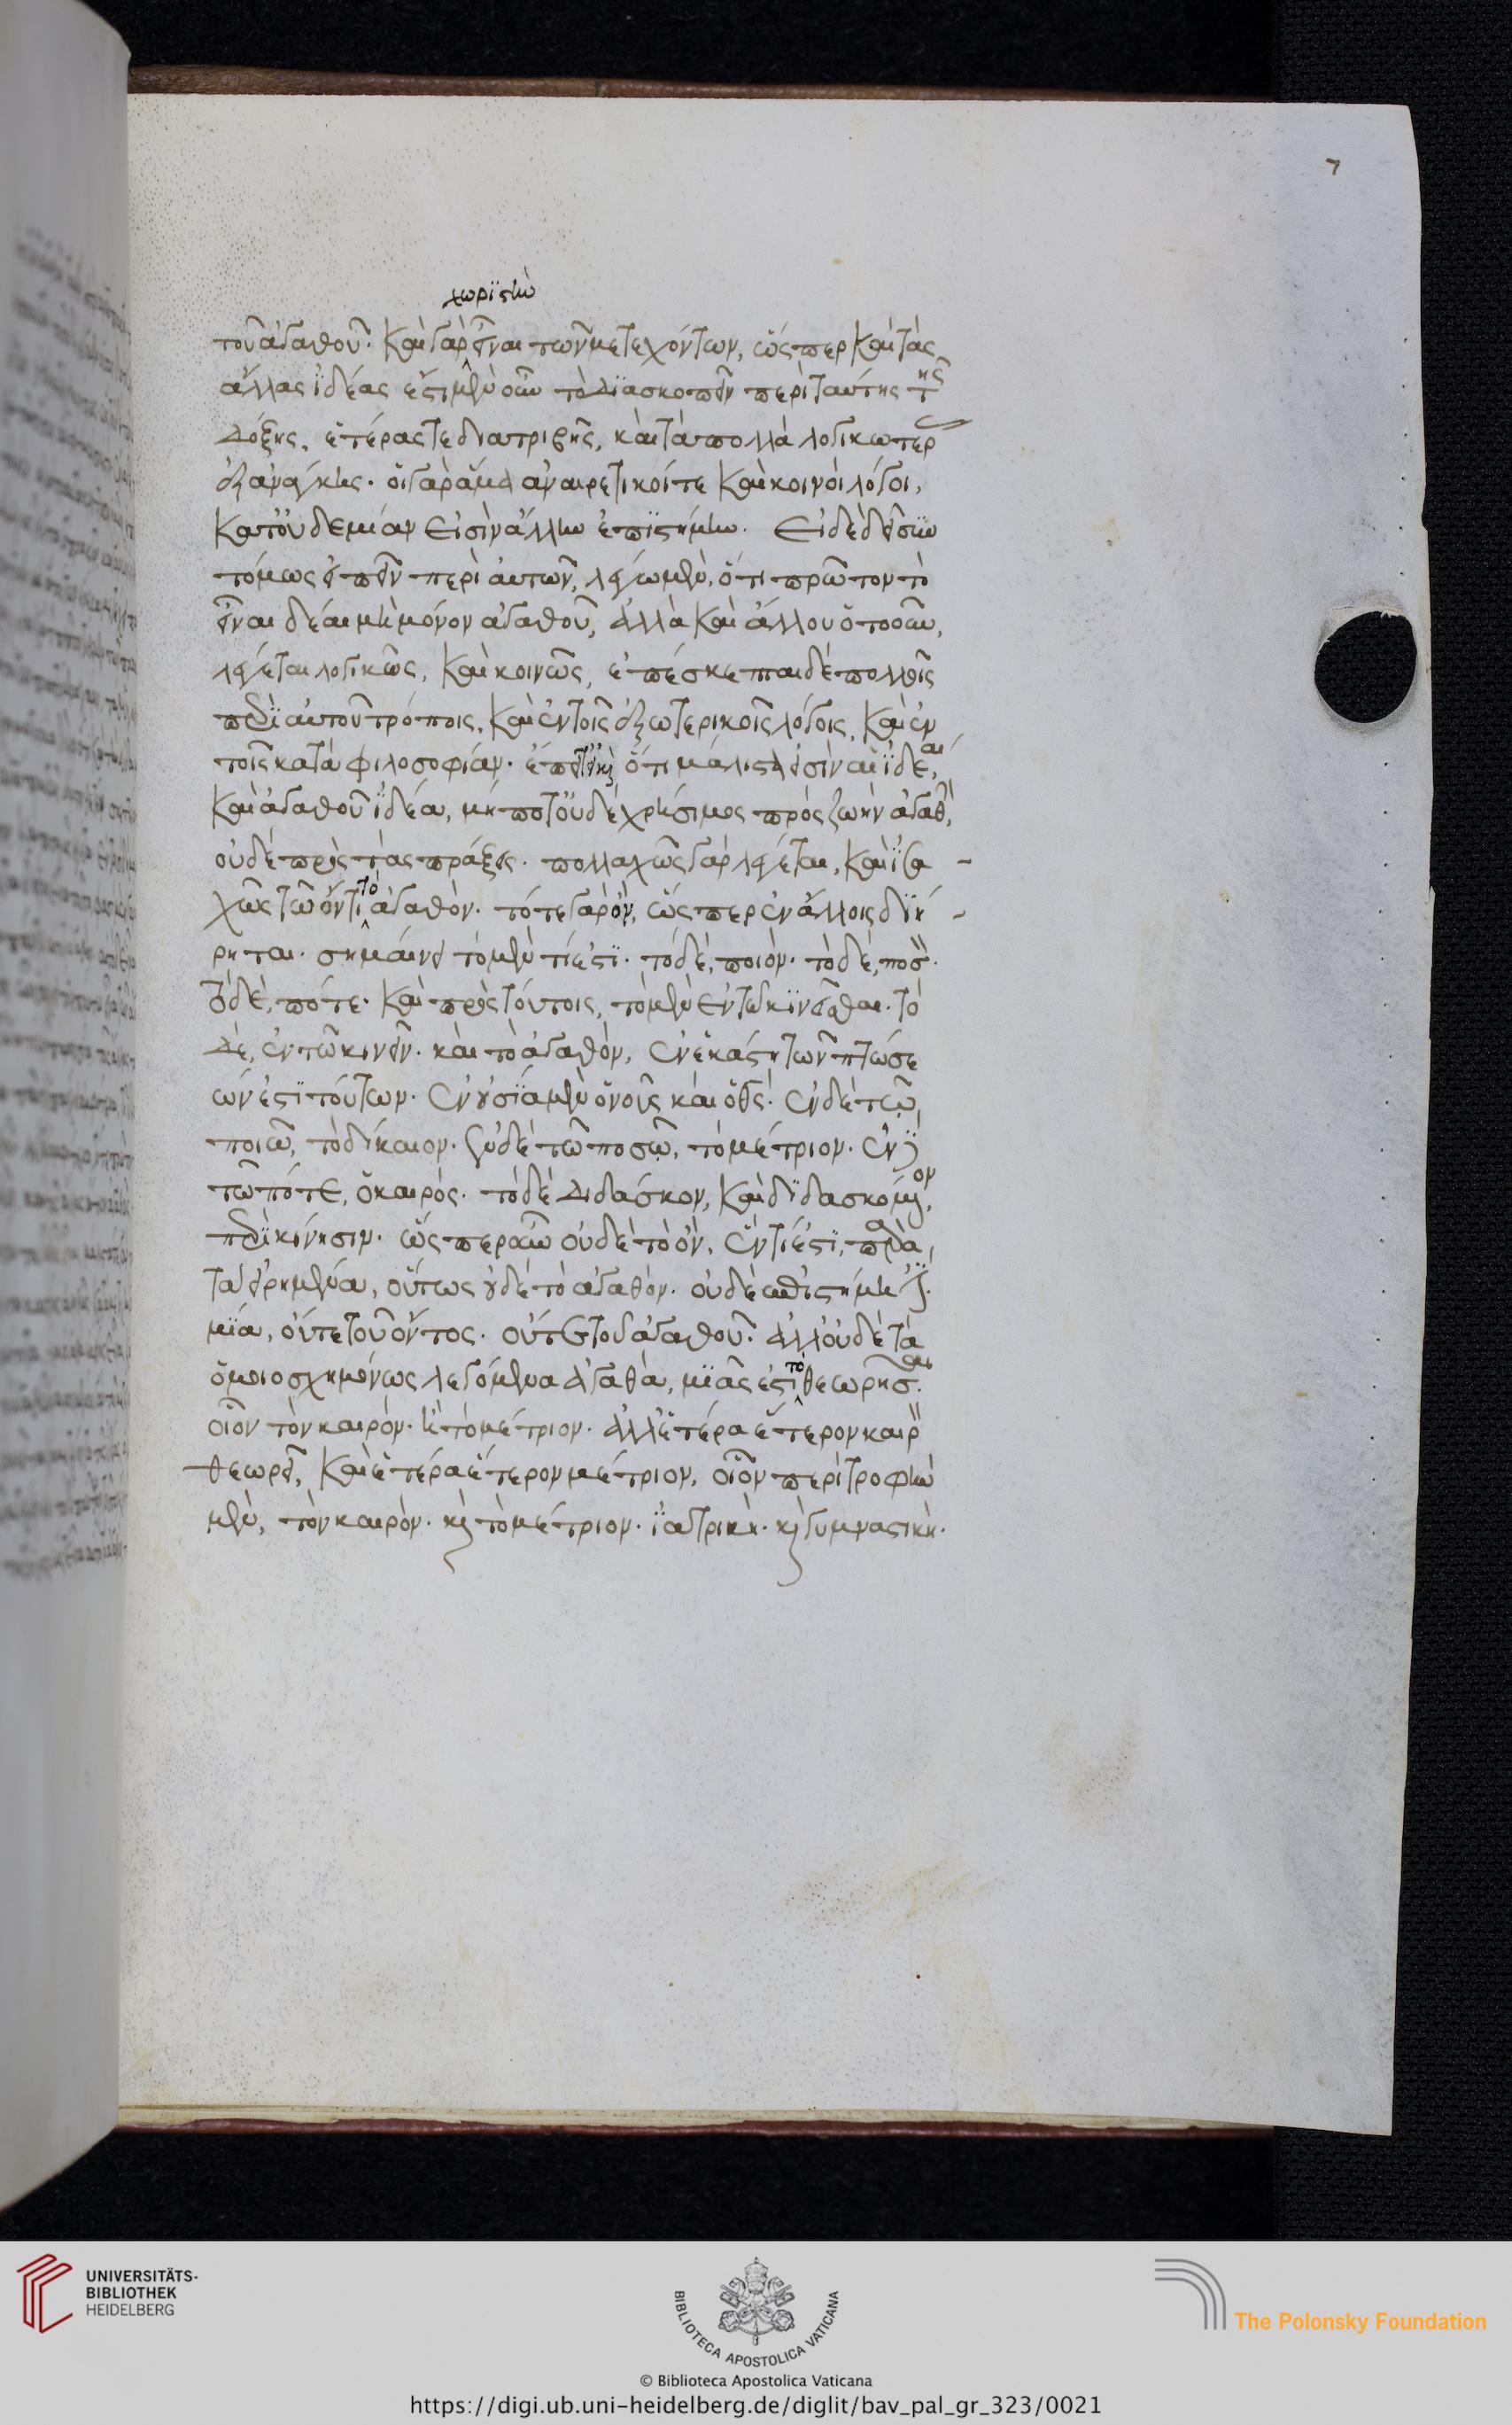 7
χωριστὴν
τοῦ ἀγαθοῦ. καὶ γὰρ εἶναι τῶν μετεχόντων, ὥσπερ καὶ τὰς
ἄλλας ἰδέας ἔστι μὲν οὖν τὸ διασκοπεῖν περὶ ταύτης τῆς
δόξης, ἑτέρας τε διατριβῆς, καὶ τὰ πολλὰ λογικωτέρας
ἐξ ἀνάγκης. οἱ γὰρ ἅμα ἀναιρετικοί τε καὶ κοινοὶ λόγοι,
κατ' οὐδεμίαν εἰσὶν ἄλλην ἐπιστήμην. εἰ δὲ δεῖ συν
τόμως εἰπεῖν περὶ αὐτῶν, λέγωμεν, ὅτι πρῶτον τὸ
εἶναι δέαι μὴ μόνον ἀγαθοῦ, ἀλλὰ καὶ ἄλλου ὁτοοῦν,
λέγεται λογικῶς, καὶ κοινῶς, ἐπέσκεπται δὲ πολλοῖς
περὶ αὐτοῦ τρόποις, καὶ ἐν τοῖς ἐξωτερικοῖς λόγοις, καὶ ἐν
τοῖς κατὰ φιλοσοφίαν. ἔπειτ' εἰ καὶ ὅτι μάλιστα εἰσὶν αἱ ἰδέαι,
καὶ ἀγαθοῦ ἰδέα, μή ποτ' οὐδὲ χρήσιμος πρὸς ζωὴν ἀγαθὴν,
οὐδὲ πρὸς τὰς πράξεις. πολλαχῶς γὰρ λέγεται, καὶ ἰσα
χῶς τῶ ὄντι τὸ ἀγαθόν. τό τε γὰρ ὄν, ὥσπερ ἐν ἄλλοις διή
ρηται. σημαίνει τὸ μὲν τί ἐστι. τὸ δὲ, ποιόν. τὸ δὲ, ποσόν.
τὸ δὲ, πότε. καὶ πρὸς τούτοις, τὸ μὲν ἐν τῶ κινεῖσθαι. τὸ
δὲ, ἐν τῶ κινεῖν. καὶ τὸ ἀγαθόν, ἐν ἑκάστη τῶν πτώσε
ών ἐστι τούτων. ἐν οὐσία μὲν ὁ νοῦς καὶ ὁ θεός. ἐν δὲ τῶ
ποιῶ, τὸ δίκαιον. ἐν δὲ τῶ ποσῶ, τὸ μέτριον. ἐν δὲ
τῶ πότε, ὁ καιρός. τὸ δὲ διδάσκον, καὶ διδασκόμενον,
περὶ κίνησιν. ὥσπερ οὖν οὐδὲ τὸ ὄν, ἕν τι ἐστι, παρὰ
τὰ εἰρημένα, οὕτως οὐδὲ τὸ ἀγαθόν. οὐδὲ ἐπιστήμη ἐστὶ
μία, οὔτε τοῦ ὄντος. οὔτε τοῦ ἀγαθοῦ. ἀλλ' οὐδὲ τὰ
ὁμοιοσχημόνως λεγόμενα ἀγαθά, μιᾶς ἐστὶ τὸ θεωρῆσαι.
οἷον τὸν καιρόν. ἢ τὸ μέτριον. ἀλλ' ἑτέρα ἕτερον καιρὸν
θεωρεῖ, καὶ ἑτέρα ἕτερον μέτριον, οἷον περὶ τροφὴν
μὲν, τὸν καιρόν. καὶ τὸ μέτριον. ἰατρική. καὶ γυμναστική.
UNIVERSITÄTS-
BIBLIOTHEK
HEIDELBERG
BIBLIOTECA APOSTOLICA VATICANA
The Polonsky Foundation
© Biblioteca Apostolica Vaticana
https://digi.ub.uni-heidelberg.de/diglit/bav_pal_gr_323/0021